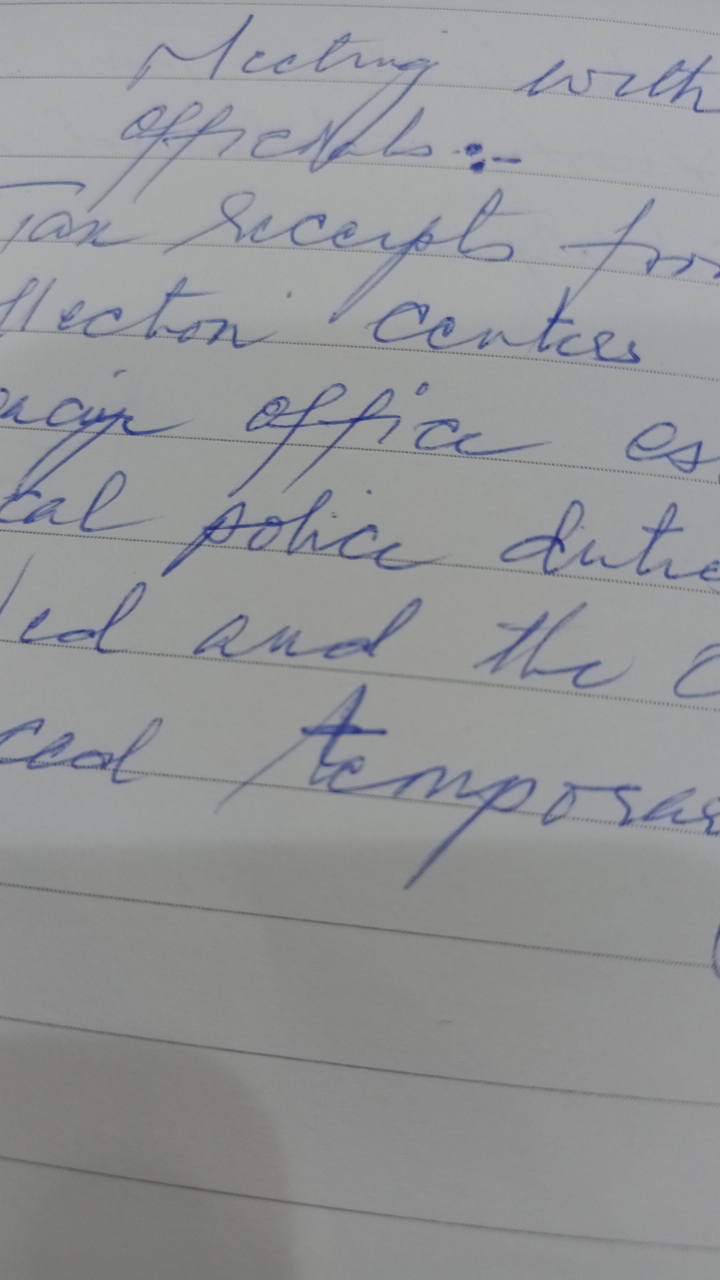 Meeting with
officials :-
Tax receipts from
llection centers
office es
cal police dutie
led and the
ced temporar